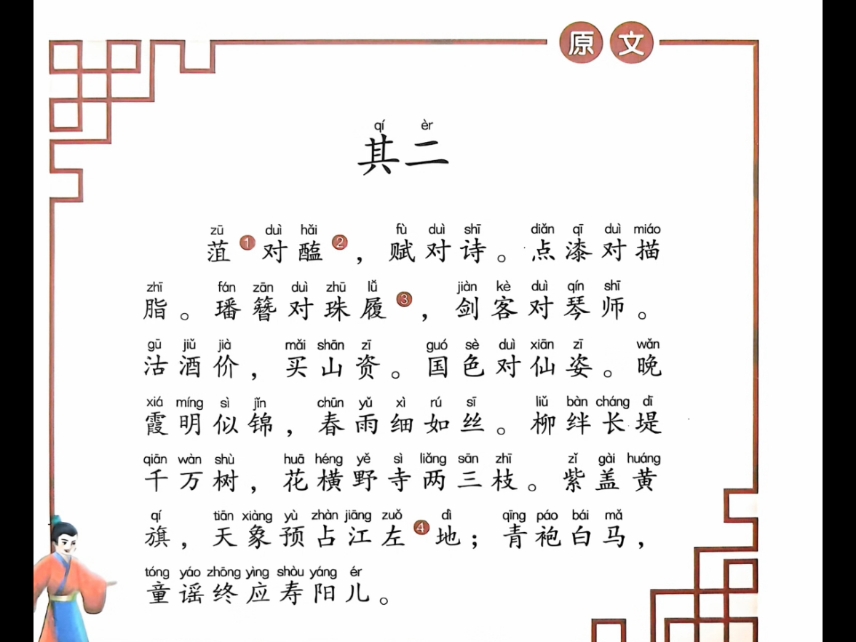 原文
qí èr
其二
zū duì hǎi fù duì shī diǎn qī duì miáo
菹①对醢②，赋对诗。点漆对描
zhī fán zān duì zhū lǚ jiàn kè duì qín shī
脂。璠簪对珠履③，剑客对琴师。
gū jiǔ jià mǎi shān zī guó sè duì xiān zī wǎn
沽酒价，买山资。国色对仙姿。晚
xiá míng sì jǐn chūn yǔ xì rú sī liǔ bàn cháng dī
霞明似锦，春雨细如丝。柳绊长堤
qiān wàn shù huā héng yě sì liǎng sān zhī zǐ gài huáng
千万树，花横野寺两三枝。紫盖黄
qí tiān xiàng yù zhàn jiāng zuǒ dì qīng páo bái mǎ
旗，天象预占江左④地；青袍白马，
tóng yáo zhōng yìng shòu yáng ér
童谣终应寿阳儿。